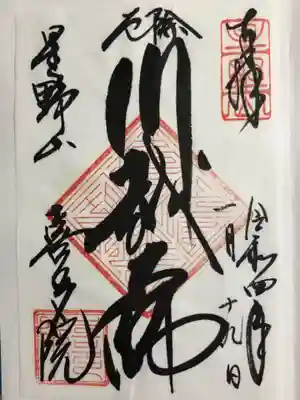 奉拝
令和四年
一月十九日
厄除
川越大師
星野山
喜多院